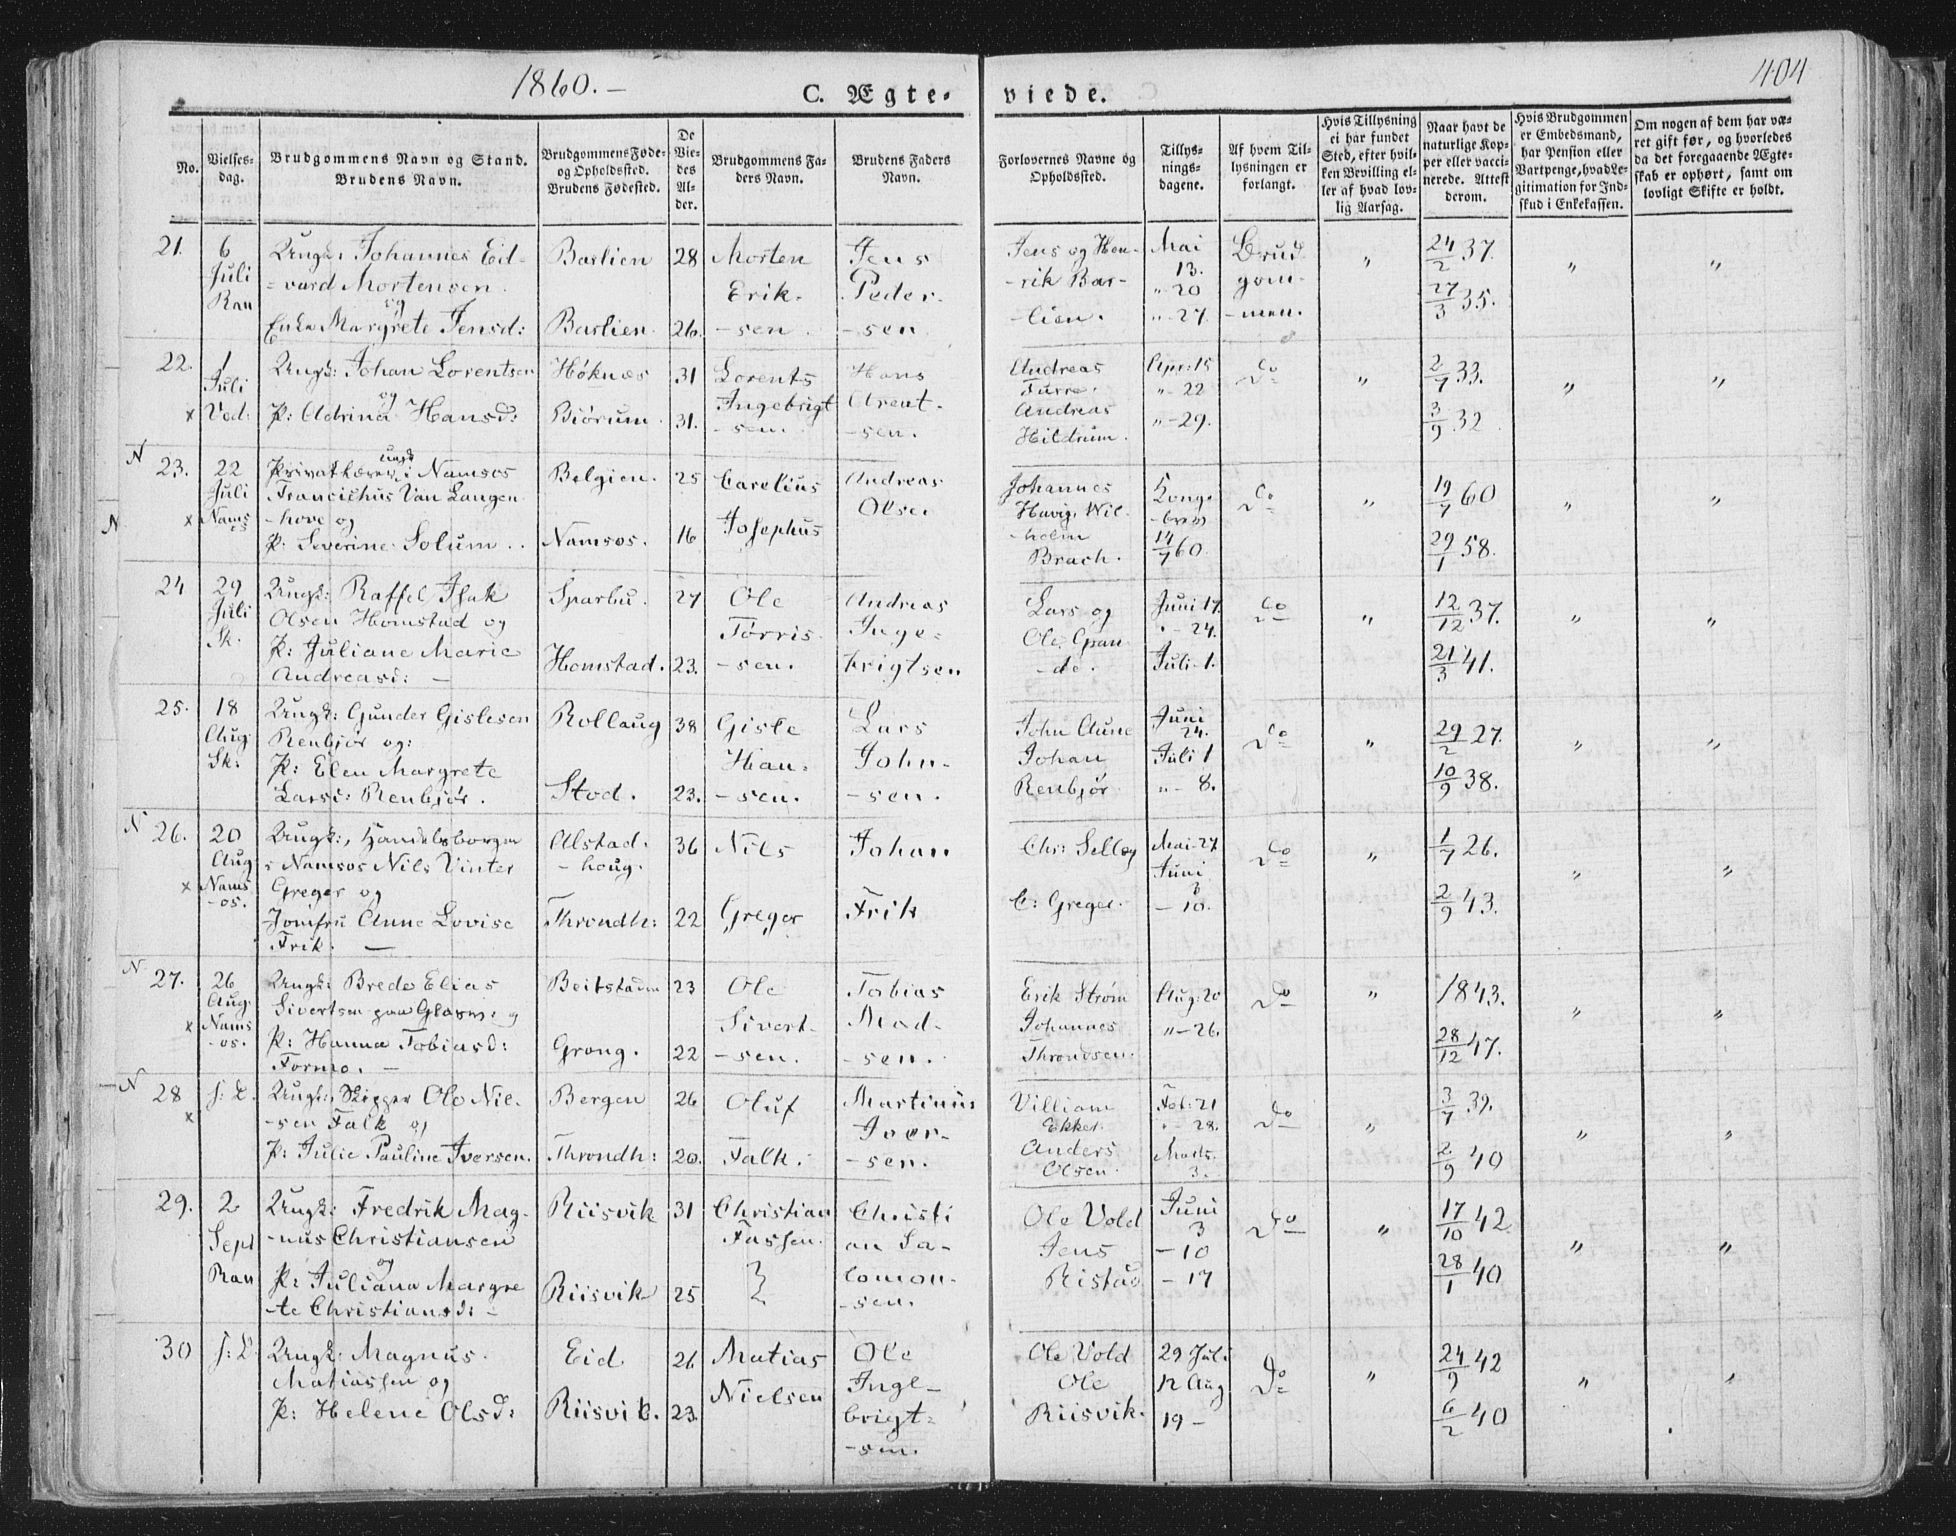 1860. –
C. Ægte-
viede.
404
No.
Vielses-
dag.
Brudgommens Navn og Stand.
Brudens Navn.
Brudgommens Føde-
og Opholdssted.
Brudens Fødested.
De
Vie-
des
Al-
der.
Brudgommens Fa-
ders Navn.
Brudens Faders
Navn.
Forlovernes Navne og
Opholdssted.
Tillys-
nings-
dagene.
Af hvem Til-
lysningen er
forlangt.
Hvis Tillysning
ei har fundet
Sted, efter hvil-
ken Bevilling el-
ler af hvad lov-
lig Aarsag.
Naar havt de
naturlige Kop-
per eller vacci-
nerede. Attest
derom.
Hvis Brudgommen
er Embedsmand,
har Pension eller
Vartpenge, hvad Le-
gitimation for Ind-
skud i Enkekassen.
Om nogen af dem har væ-
ret gift før, og hvorledes
da det foregaaende Ægte-
skab er ophørt, samt om
lovligt Skifte er holdt.
21.
6
Juli
Ran
Ungk: Johannes Eid-
-vard Mortensen
og
Enke Margrete Jensd:
Barlien
Barlien.
28
26.
Morten
Erik-
-sen.
Jens
Peder-
-sen.
Jens og Hen-
-rik Bar-
-lien.
Mai
13.
" 20
" 27.
Brud
gom-
-men.
"
24/2 37.
27/3 35.
"
"
22.
1
Juli
x Ved:
Ungk: Johan Lorentsen
og
P: Adrina Hansd:
Høknæs
Biörum.
31
31.
Lorents
Ingebrigt
-sen.
Hans
Arent-
-sen.
Andreas
Furre.
Andreas
Hildrum.
Apr: 15
" 22
" 29.
Do
"
2/7 33.
3/9 32
"
"
N
23.
22
Juli
x Nams
os
N
ungk
Privatlærer i Namsos
Francischus Van Langen
-hove og
P: Severine Solum..
Belgien.
Namsos.
25
16
Carelius
Josephus
Andreas
Olsen
Johannes
Havig, Wil-
-helm
Brach.
Konge-
-brev
14/7 60.
Do
"
19/7 60
29/1 58.
"
"
24
29
Juli
Sk.
Ungk: Raffel Isak
Olsen Homstad og
P: Juliane Marie
Andreasd: –
Sparbu.
Homstad.
27
23.
Ole
Törris-
-sen.
Andreas
Inge-
brigtsen
Lars og
Ole Gran-
-de.
Juni 17.
" – 24.
Juli 1.
Do
"
12/12 37.
21/3 41.
"
"
25.
18
Aug.
Sk:
Ungk: Gunder Gislesen
Renbjör og:
P: Elen Margrete
Larsd: Renbjör.
Rollaug
Stod.
38
23.
Gisle
Han-
-sen.
Lars
John-
-sen.
John Aune
Johan
Renbjör
Juni
24.
Juli 1
" – 8.
Do
"
29/2 27.
10/9 38.
"
"
N
26.
20
Aug
x Nams
-os.
Ungk:, Handelsborger
i Namsos Nils Vinter
Greger og
Jomfru Anne Lovise
Frik. —
Alstad-
-houg.
Throndh:
36
22
Nils
Greger
Johan
Frik
Chr: Selløg
C: Greger.
Mai 27
Juni
3
– 10.
Do
"
1/7 26.
2/9 43.
"
"
N
27.
26
Aug.
x Nams
-os.
Ungk: Brede Elias
Sivertsen paa Glasøe: og
P: Hanna Tobiasd:
Formo. —
Beitstaden
Grong.
23
22
Ole
Sivert-
-sen.
Tobias
Mad-
-sen.
Erik Strøm
Johannes
Throndsen.
Aug: 20
" – 26.
Do
"
1843.
28/12 47.
"
"
N
28
x
s: D.
Ungk:, Skipper Ole Niel-
-sen Falk og
P: Julie Pauline Iversen.
Bergen
Throndh:
26
20.
Oluf
Falk.
Martinus
Iver-
-sen.
Villiam
Ekker.
Anders
Olsen.
Feb: 21
" – 28.
Marts
3.
Do
"
3/7 39.
2/9 40
"
"
29.
2
Sept
Ran
Ungk: Fredrik Mag-
-nus Christiansen
og
P: Juliana Margre
-te Christiansd: –
Riisvik
Riisvik
31
25
Christian
Fassen.
Christi
an Sa-
lomon-
-sen.
Ole Vold
Jens
Ristad
Juni
3
– 10
– 17
Do
"
17/10 42
28/1 40
"
"
30
s: D.
Ungk: Magnus
Matiassen og
P: Helene Olsd:
Eid
Riisvik.
26
23.
Matias
Nielsen
Ole
Inge-
brigt-
-sen.
Ole Vold
Ole
Riisvik.
29 Juli
12 Aug
19 –
Do
"
24/9 42
6/2 40
"
"